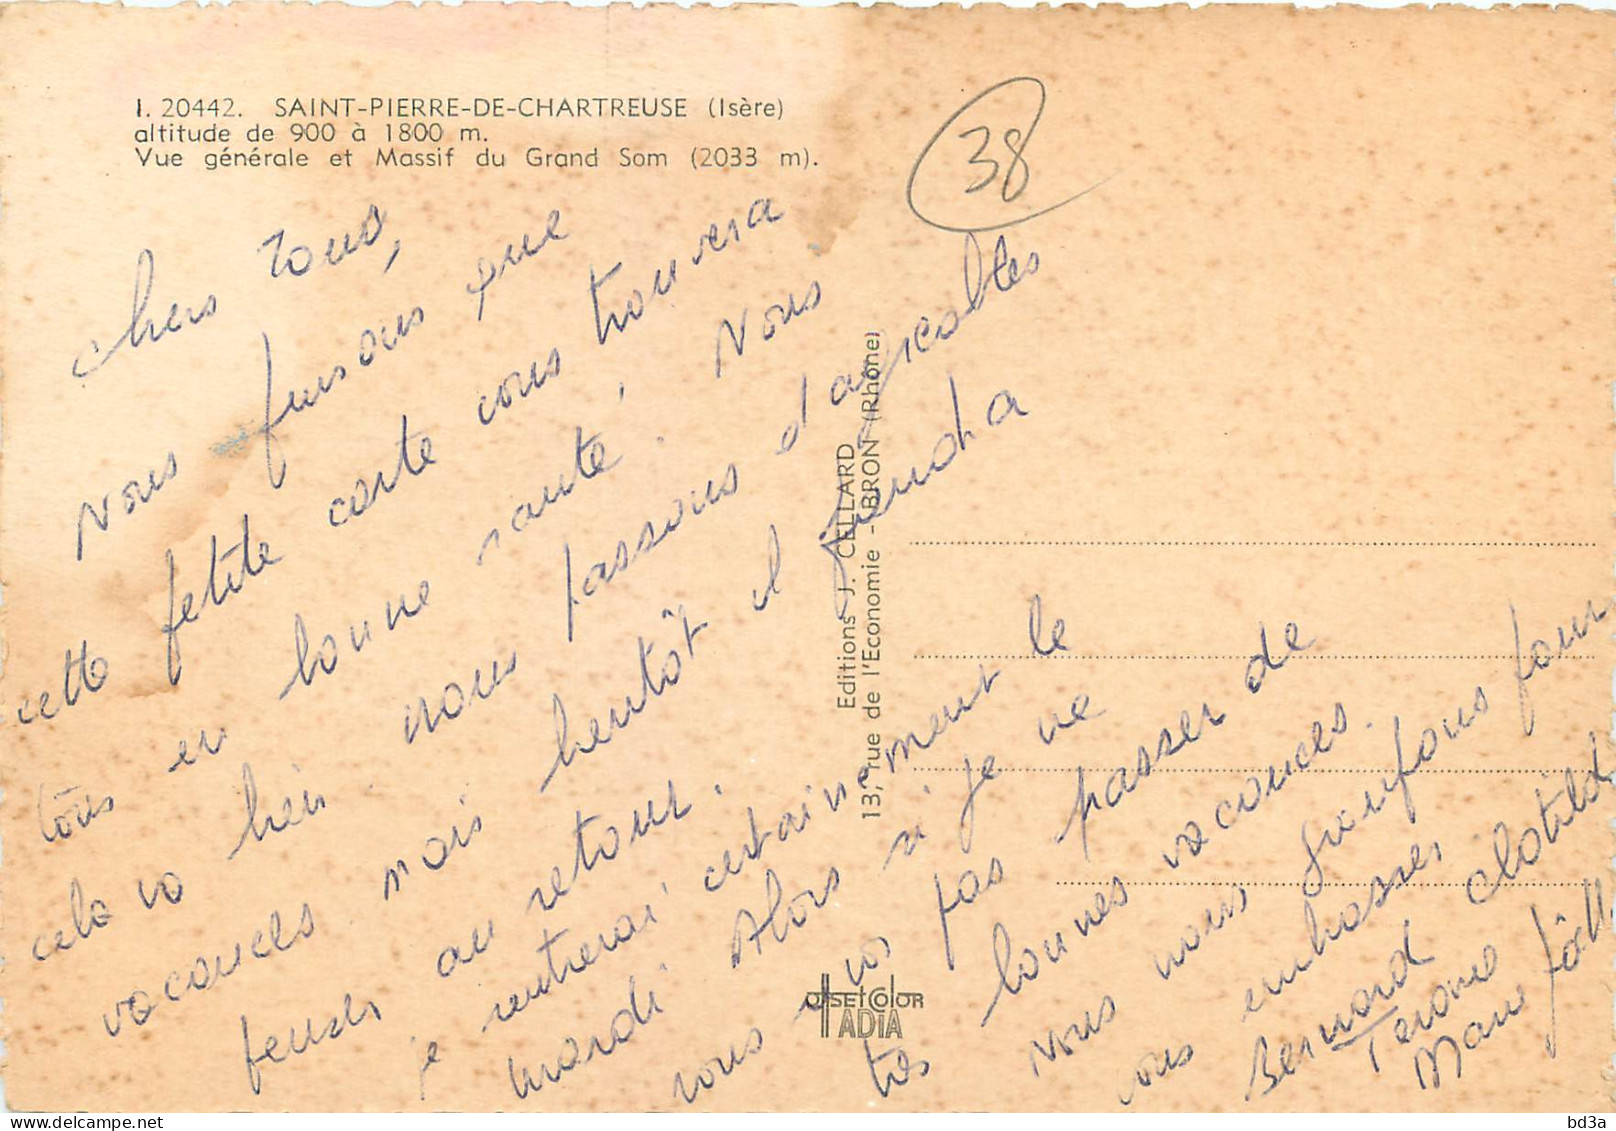 I. 20442. SAINT-PIERRE-DE-CHARTREUSE (Isère)
altitude de 900 à 1800 m.
Vue générale et Massif du Grand Som (2033 m).
38
Chers tous,
Nous pensons que
cette petite carte vous trouvera
tous en bonne santé, Nous
cela va bien. nous passons d'agréables
vacances mais bientôt il faudra
penser au retour.
je rentrerai certainement le
mardi Alors si je ne
vous vois pas passer de
très bonnes vacances.
Nous nous pour
vous embrasser
Bernard Clotilde
Marie Joëlle
Editions J. CELLARD
13, rue de l'Economie - BRON (Rhône)
OFFSET COLOR
ADIA
delcampe.net
bd3a